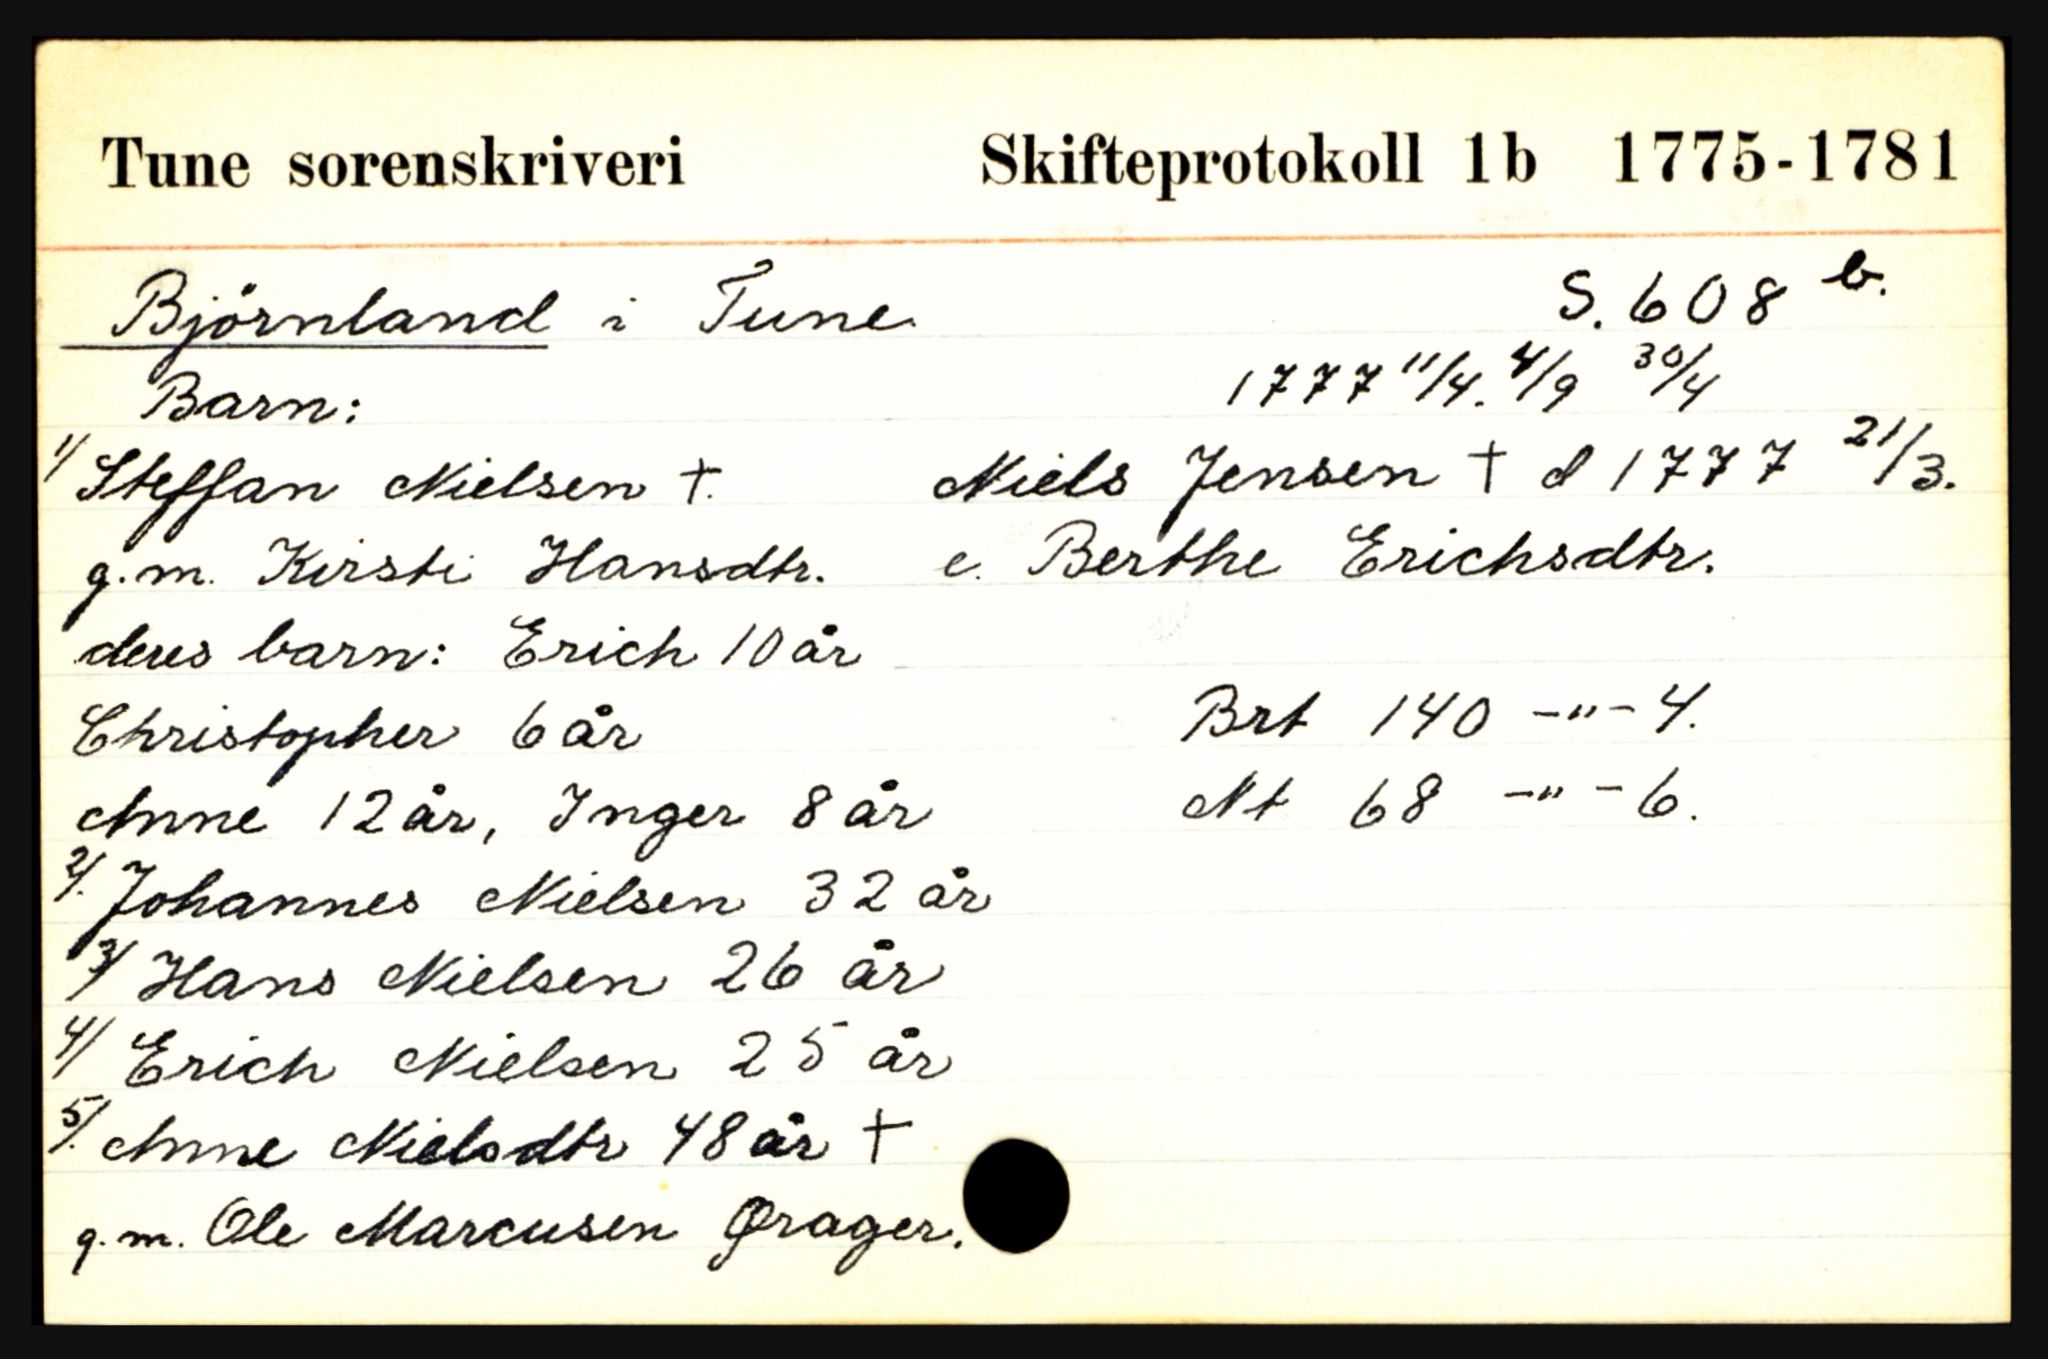 Tune sorenskriveri Skifteprotokoll 1b 1775-1781
Björnland i Tune. S. 608 b.
Barn: 1777 11/4. 4/9 30/4
1/ Steffan Nielsen †. Niels Jensen † d 1777 21/3.
g.m. Kirsti Hansdtr. e. Berthe Erichsdtr.
deres barn: Erich 10 år
Christopher 6 år Brt 140 -"- 4.
Anne 12 år, Inger 8 år Nt 68 -"- 6.
2/. Johannes Nielsen 32 år
3/ Hans Nielsen 26 år
4/ Erich Nielsen 25 år
5/. Anne Nielsdtr 48 år †
g.m. Ole Marcusen Ørager.